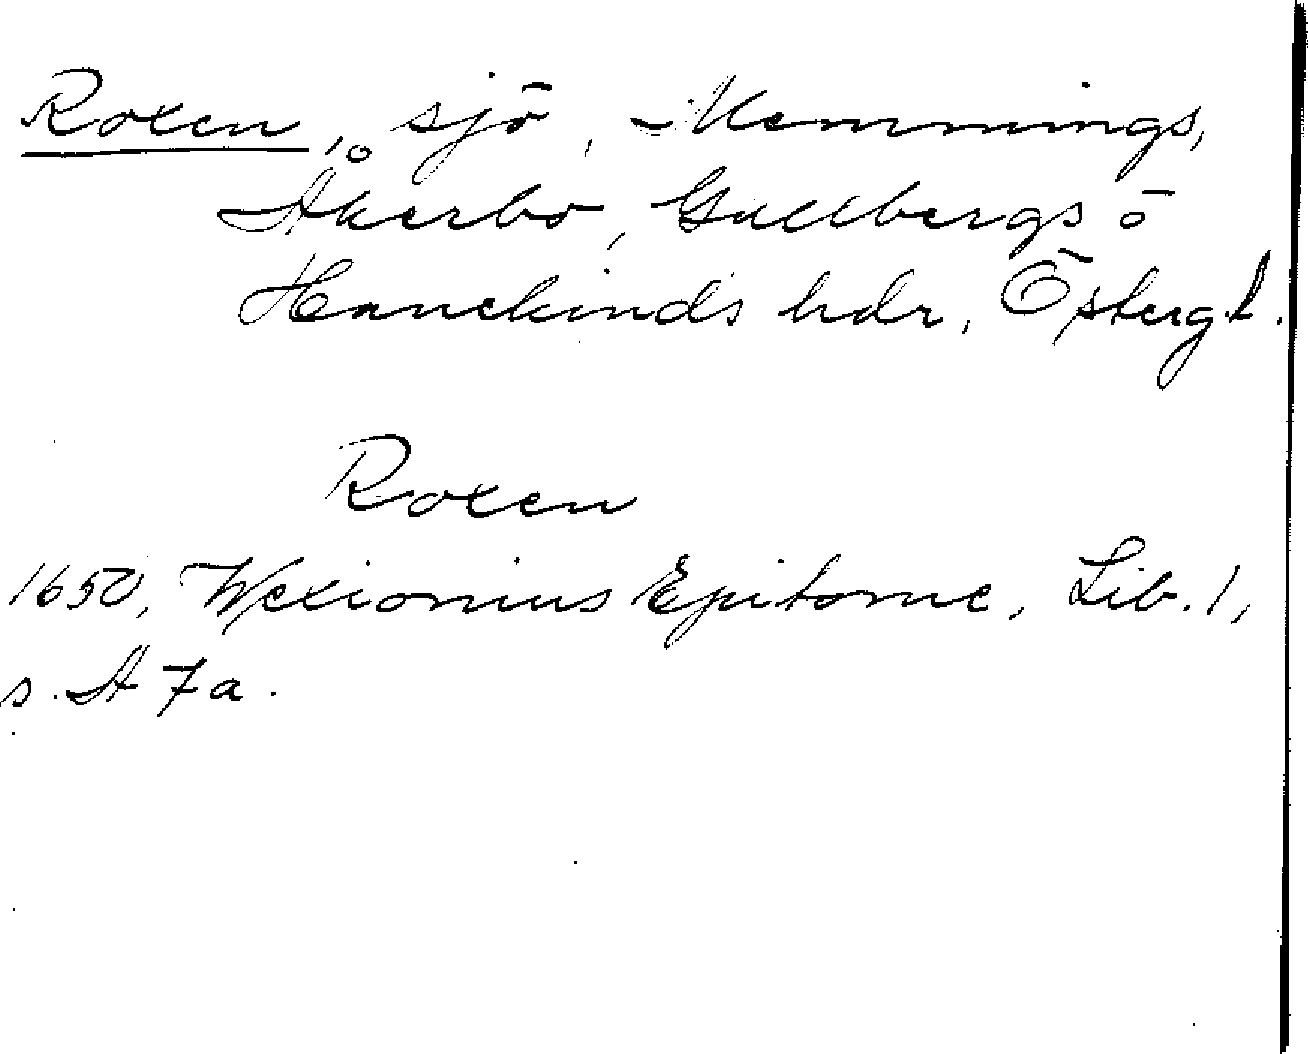 Roxen, sjö, Memmings,
Åkerbo, Gullbergs ö
Hanekinds hdr, Östergl.
Roxen
1650, Wexionius Epitome, Lib. 1,
s. A 7a.